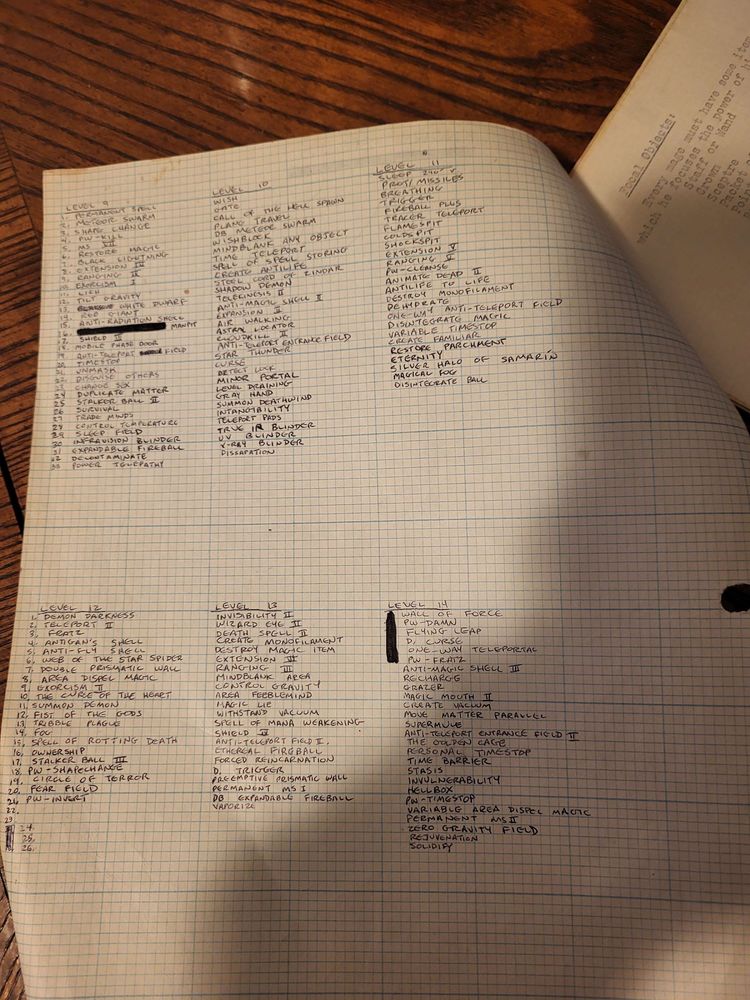 LEVEL 9
1. PERMANENT SPELL
2. METEOR SWARM
3. SHAPE CHANGE
4. PW-KILL
5. MS VII
6. RESTORE MAGIC
7. BLACK LIGHTNING
8. EXTENSION IV
9. RANGING IV
10. EXORCISM I
11. LICH
12. TILT GRAVITY
13. WHITE DWARF
14. RED GIANT
15. ANTI-RADIATION SHELL
16.
17. SHIELD III
18. MOBILE PHASE DOOR
19. ANTI-TELEPORT FIELD
20. TIMESTOP
21. UNMASK
22. DISGUISE OTHERS
23. CHANGE SEX
24 DUPLICATE MATTER
25 STALKER BALL II
26 SURVIVAL
27 TRADE MINDS
28 CONTROL TEMPERATURE
29 SLEEP FIELD
30 INFRAVISION BLINDER
31 EXPANDABLE FIREBALL
32 DECONTAMINATE
33 POWER TELEPATHY
LEVEL 10
WISH
GATE
CALL OF THE HELL SPAWN
PLANE TRAVEL
DB METEOR SWARM
WISHBLOCK
MINDBLANK ANY OBJECT
TIME TELEPORT
SPELL OF SPELL STORING
CREATE ANTILIFE
STEEL CORD OF ZINDAR
SHADOW DEMON
TELEKINESIS II
ANTI-MAGIC SHELL II
EXPANSION II
AIR WALKING
ASTRAL LOCATOR
CLOUDKILL II
ANTI-TELEPORT ENTRANCE FIELD
STAR THUNDER
CURSE
DETECT LOCK
MINOR PORTAL
LEVEL DRAINING
GRAY HAND
SUMMON DEATHWIND
INTANGIBILITY
TELEPORT PADS
TRUE IR BLINDER
UV BLINDER
X-RAY BLINDER
DISSAPATION
LEVEL 11
SLEEP
PROT/MISSILES
BREATHING
TRIGGER
FIREBALL PLUS
TRACER TELEPORT
FLAMESPIT
COLDSPIT
SHOCKSPIT
EXTENSION V
RANGING V
PW-CLEANSE
ANIMATE DEAD II
ANTILIFE TO LIFE
DESTROY MONOFILAMENT
DEHYDRATE
ONE-WAY ANTI-TELEPORT FIELD
DISINTEGRATE MAGIC
VARIABLE TIMESTOP
CREATE FAMILIAR
RESTORE PARCHMENT
ETERNITY
SILVER HALO OF SAMARIN
MAGICAL FOG
DISINTEGRATE BALL
LEVEL 12
1. DEMON DARKNESS
2. TELEPORT II
3. FRATZ
4. ANTIGAN'S SHELL
5. ANTI-FLY SHELL
6. WEB OF THE STAR SPIDER
7. DOUBLE PRISMATIC WALL
8. AREA DISPEL MAGIC
9. EXORCISM II
10. THE CURE OF THE HEART
11. SUMMON DEMON
12. FIST OF THE GODS
13. TRIBBLE PLAGUE
14. FOG
15. SPELL OF ROTTING DEATH
16. OWNERSHIP
17. STALKER BALL III
18. PW-SHAPECHANGE
19. CIRCLE OF TERROR
20. FEAR FIELD
21. PW-INVERT
22.
23.
24.
25.
26.
LEVEL 13
INVISIBILITY II
WIZARD EYE II
DEATH SPELL II
CREATE MONOFILAMENT
DESTROY MAGIC ITEM
EXTENSION VI
RANGING III
MINDBLANK AREA
CONTROL GRAVITY
AREA FEEBLEMIND
MAGIC LIE
WITHSTAND VACUUM
SPELL OF MANA WEAKENING
SHIELD IV
ANTI-TELEPORT FIELD II
ETHEREAL FIREBALL
FORCED REINCARNATION
D. TRIGGER
PREEMPTIVE PRISMATIC WALL
PERMANENT MS I
DB EXPANDABLE FIREBALL
VAPORIZE
LEVEL 14
WALL OF FORCE
PW-DAMN
FLYING LEAP
D. CURSE
ONE-WAY TELEPORTAL
PW-FRATZ
ANTI-MAGIC SHELL III
RECHARGE
GRAZER
MAGIC MOUTH II
CREATE VACUUM
MOVE MATTER PARALLEL
SUPERMULE
ANTI-TELEPORT ENTRANCE FIELD II
THE GOLDEN CAGE
PERSONAL TIMESTOP
TIME BARRIER
STASIS
INVULNERABILITY
HELLBOX
PW-TIMESTOP
VARIABLE AREA DISPEL MAGIC
PERMANENT MS II
ZERO GRAVITY FIELD
REJUVENATION
SOLIDIFY
Focal Objects:
Every mage must have some item
which he focuses the power of hi
Staff or Wand
Crown
Sceptre